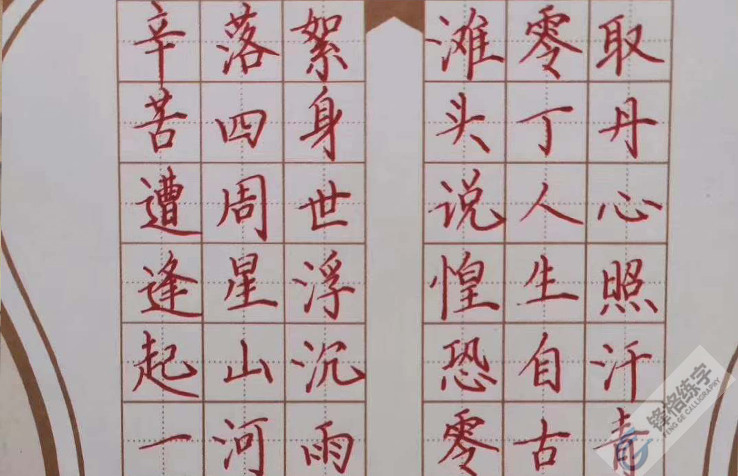 辛苦遭逢起一
落四周星山河
絮身世浮沉雨
滩头说惶恐零
零丁人生自古
取丹心照汗青
锋格练字
FENG GE CALLIGRAPHY